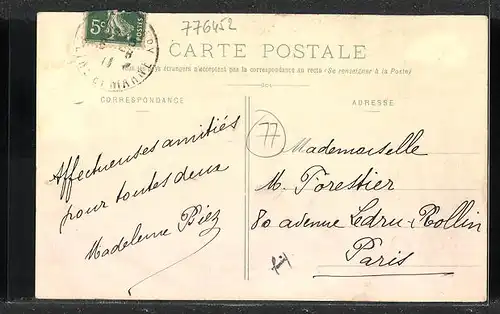 776452
5c
POSTES
CARTE POSTALE
étrangers n'acceptent pas la correspondance au recto (Se renseigner à la Poste)
CORRESPONDANCE
ADRESSE
77
Affectueuses amitiés
pour toutes deux
Madeleine Biéz
Mademoiselle
M. Forestier
80 avenue Ledru-Rollin
Paris